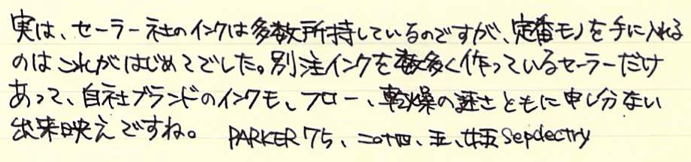 実は、セーラー社のインクは多数所持しているのですが、定番モノを手に入れる
のはこれがはじめてでした。別注インクを数多く作っているセーラーだけ
あって、自社ブランドのインクも、フロー、乾燥の速さともに申し分ない
出来映えですね。 PARKER 75、二〇十四、五、廿五